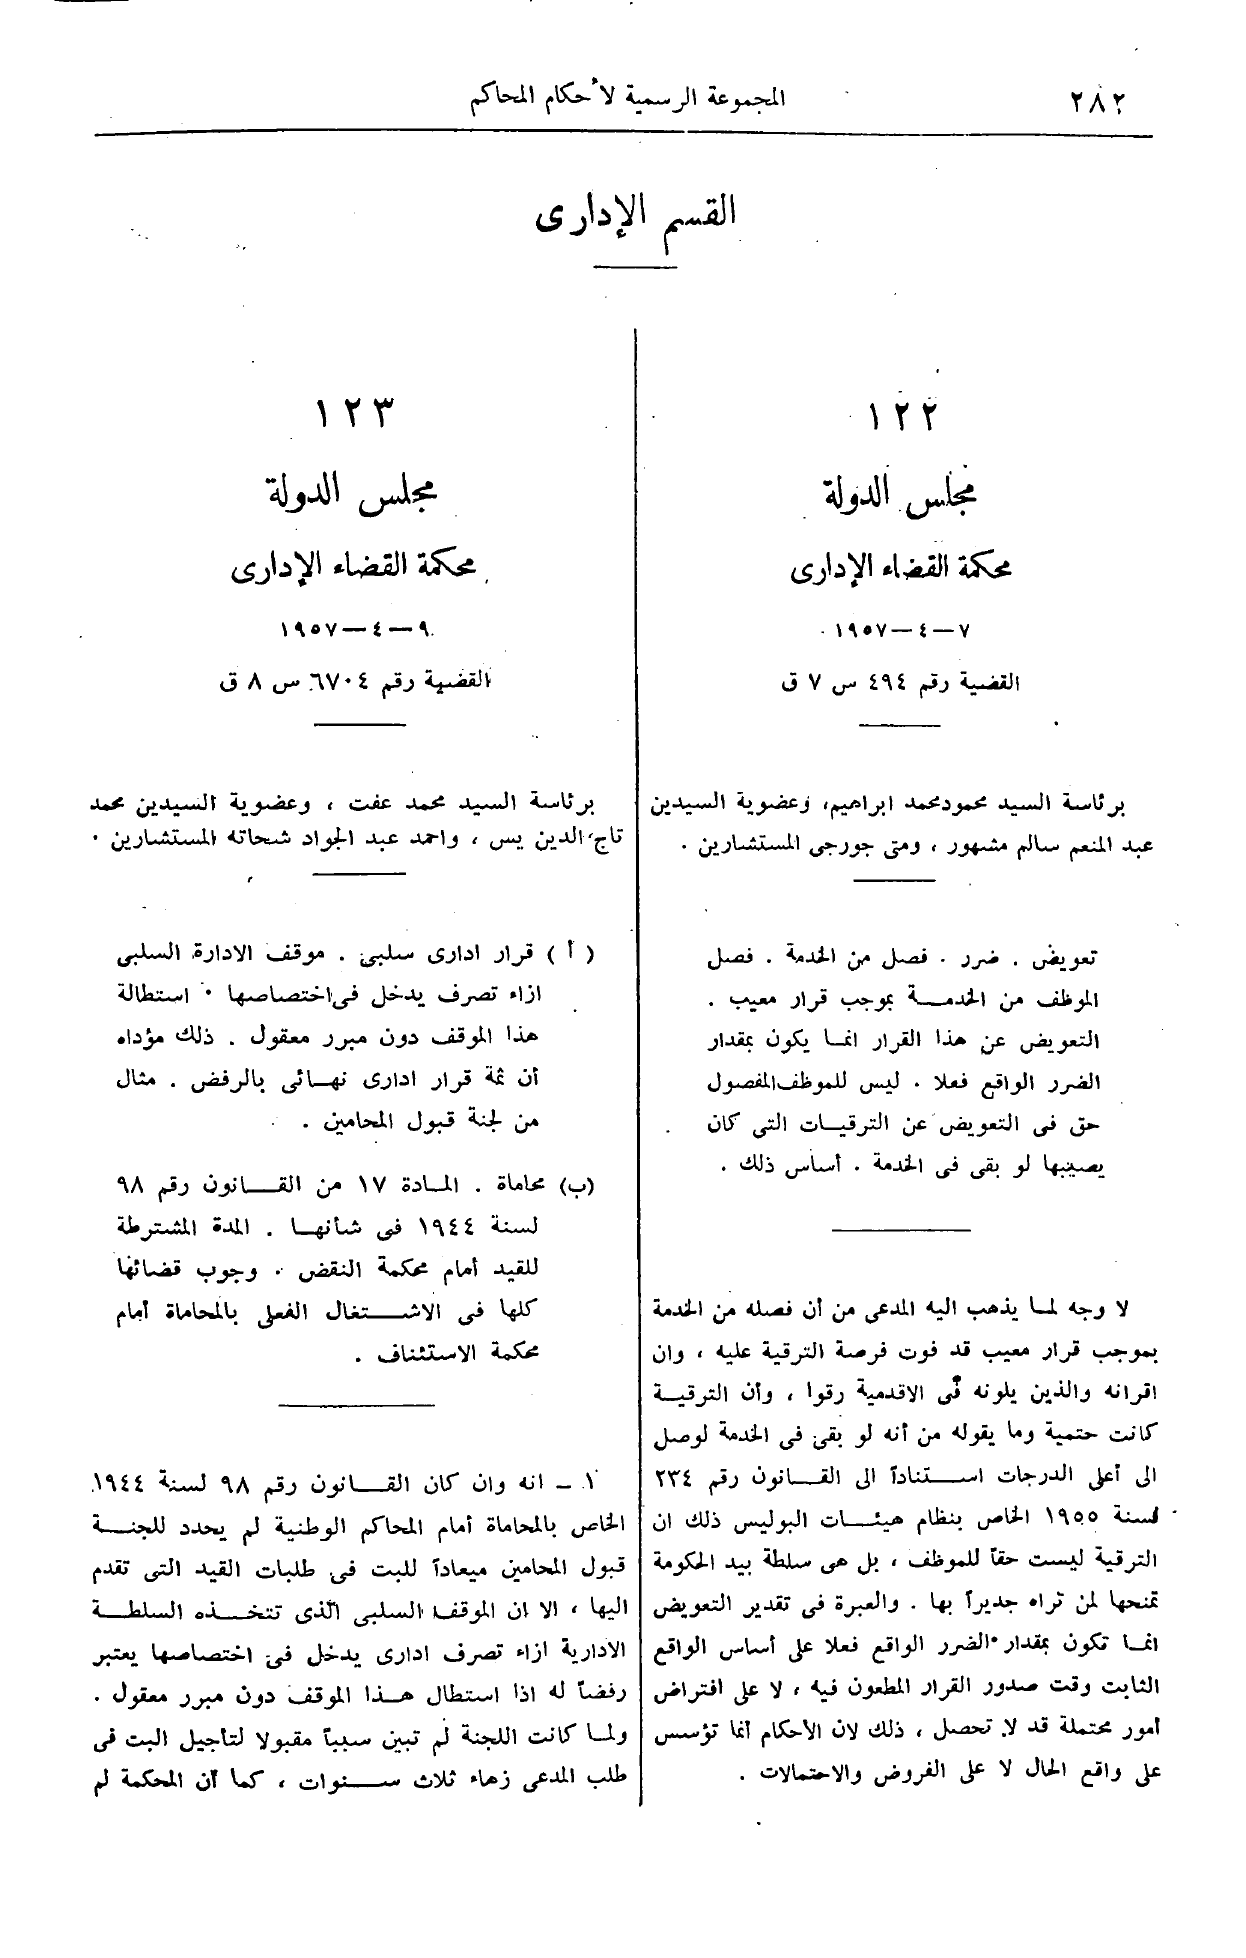 ٢٨٢
المجموعة الرسمية لأحكام المحاكم
القسم الإدارى
١٢٢
مجلس الدولة
محكمة القضاء الإدارى
٧ – ٤ – ١٩٥٧
القضية رقم ٤٩٤ س ٧ ق
برئاسة السيد محمود محمد ابراهيم، وعضوية السيدين
عبد المنعم سالم مشهور ، ومتى جورجى المستشارين .
تعويض . ضرر . فصل من الخدمة . فصل
الموظف من الخدمـــة بموجب قرار معيب .
التعويض عن هذا القرار انمـا يكون بمقدار
الضرر الواقع فعلا . ليس للموظف المفصول
حق فى التعويض عن الترقيـات التى كان
يصيبها لو بقى فى الخدمة . أساس ذلك .
لا وجه لمـا يذهب اليه المدعى من أن فصله من الخدمة
بموجب قرار معيب قد فوت فرصة الترقية عليه ، وان
اقرانه والذين يلونه فى الاقدمية رقوا ، وأن الترقيـة
كانت حتمية وما يقوله من أنه لو بقى فى الخدمة لوصل
الى أعلى الدرجات اســـتناداً الى القـــانون رقم ٢٣٤
لسنة ١٩٥٥ الخاص بنظام هيئـــات البوليس ذلك ان
الترقية ليست حقاً للموظف ، بل هى سلطة بيد الحكومة
تمنحها لمن تراه جديراً بها . والعبرة فى تقدير التعويض
انمـا تكون بمقدار الضرر الواقع فعلا على أساس الواقع
الثابت وقت صدور القرار المطعون فيه ، لا على افتراض
أمور محتملة قد لا تحصل ، ذلك لان الأحكام انما تؤسس
على واقع الحال لا على الفروض والاحتمالات .
١٢٣
مجلس الدولة
محكمة القضاء الإدارى
٩ – ٤ – ١٩٥٧
القضية رقم ٦٧٠٤ س ٨ ق
برئاسة السيد محمد عفت ، وعضوية السيدين محمد
تاج الدين يس ، واحمد عبد الجواد شحاته المستشارين .
( أ ) قرار ادارى سلبى . موقف الادارة السلبى
ازاء تصرف يدخل فى اختصاصها . استطالة
هذا الموقف دون مبرر معقول . ذلك مؤداه
أن ثمة قرار ادارى نهـائى بالرفض . مثال
من لجنة قبول المحامين .
(ب) محاماة . المـادة ١٧ من القـــانون رقم ٩٨
لسنة ١٩٤٤ فى شأنهـا . المدة المشترطة
للقيد أمام محكمة النقض . وجوب قضائها
كلها فى الاشـــتغال الفعلى بالمحاماة أمام
محكمة الاستئناف .
١ ــ انه وان كان القـــانون رقم ٩٨ لسنة ١٩٤٤
الخاص بالمحاماة أمام المحاكم الوطنية لم يحدد للجنـــة
قبول المحامين ميعاداً للبت فى طلبات القيد التى تقدم
اليها ، الا ان الموقف السلبى الذى تتخـــذه السلطـــة
الادارية ازاء تصرف ادارى يدخل فى اختصاصها يعتبر
رفضاً له اذا استطال هـــذا الموقف دون مبرر معقول .
ولمـا كانت اللجنة لم تبين سبباً مقبولا لتأجيل البت فى
طلب المدعى زهاء ثلاث ســـنوات ، كما أن المحكمة لم